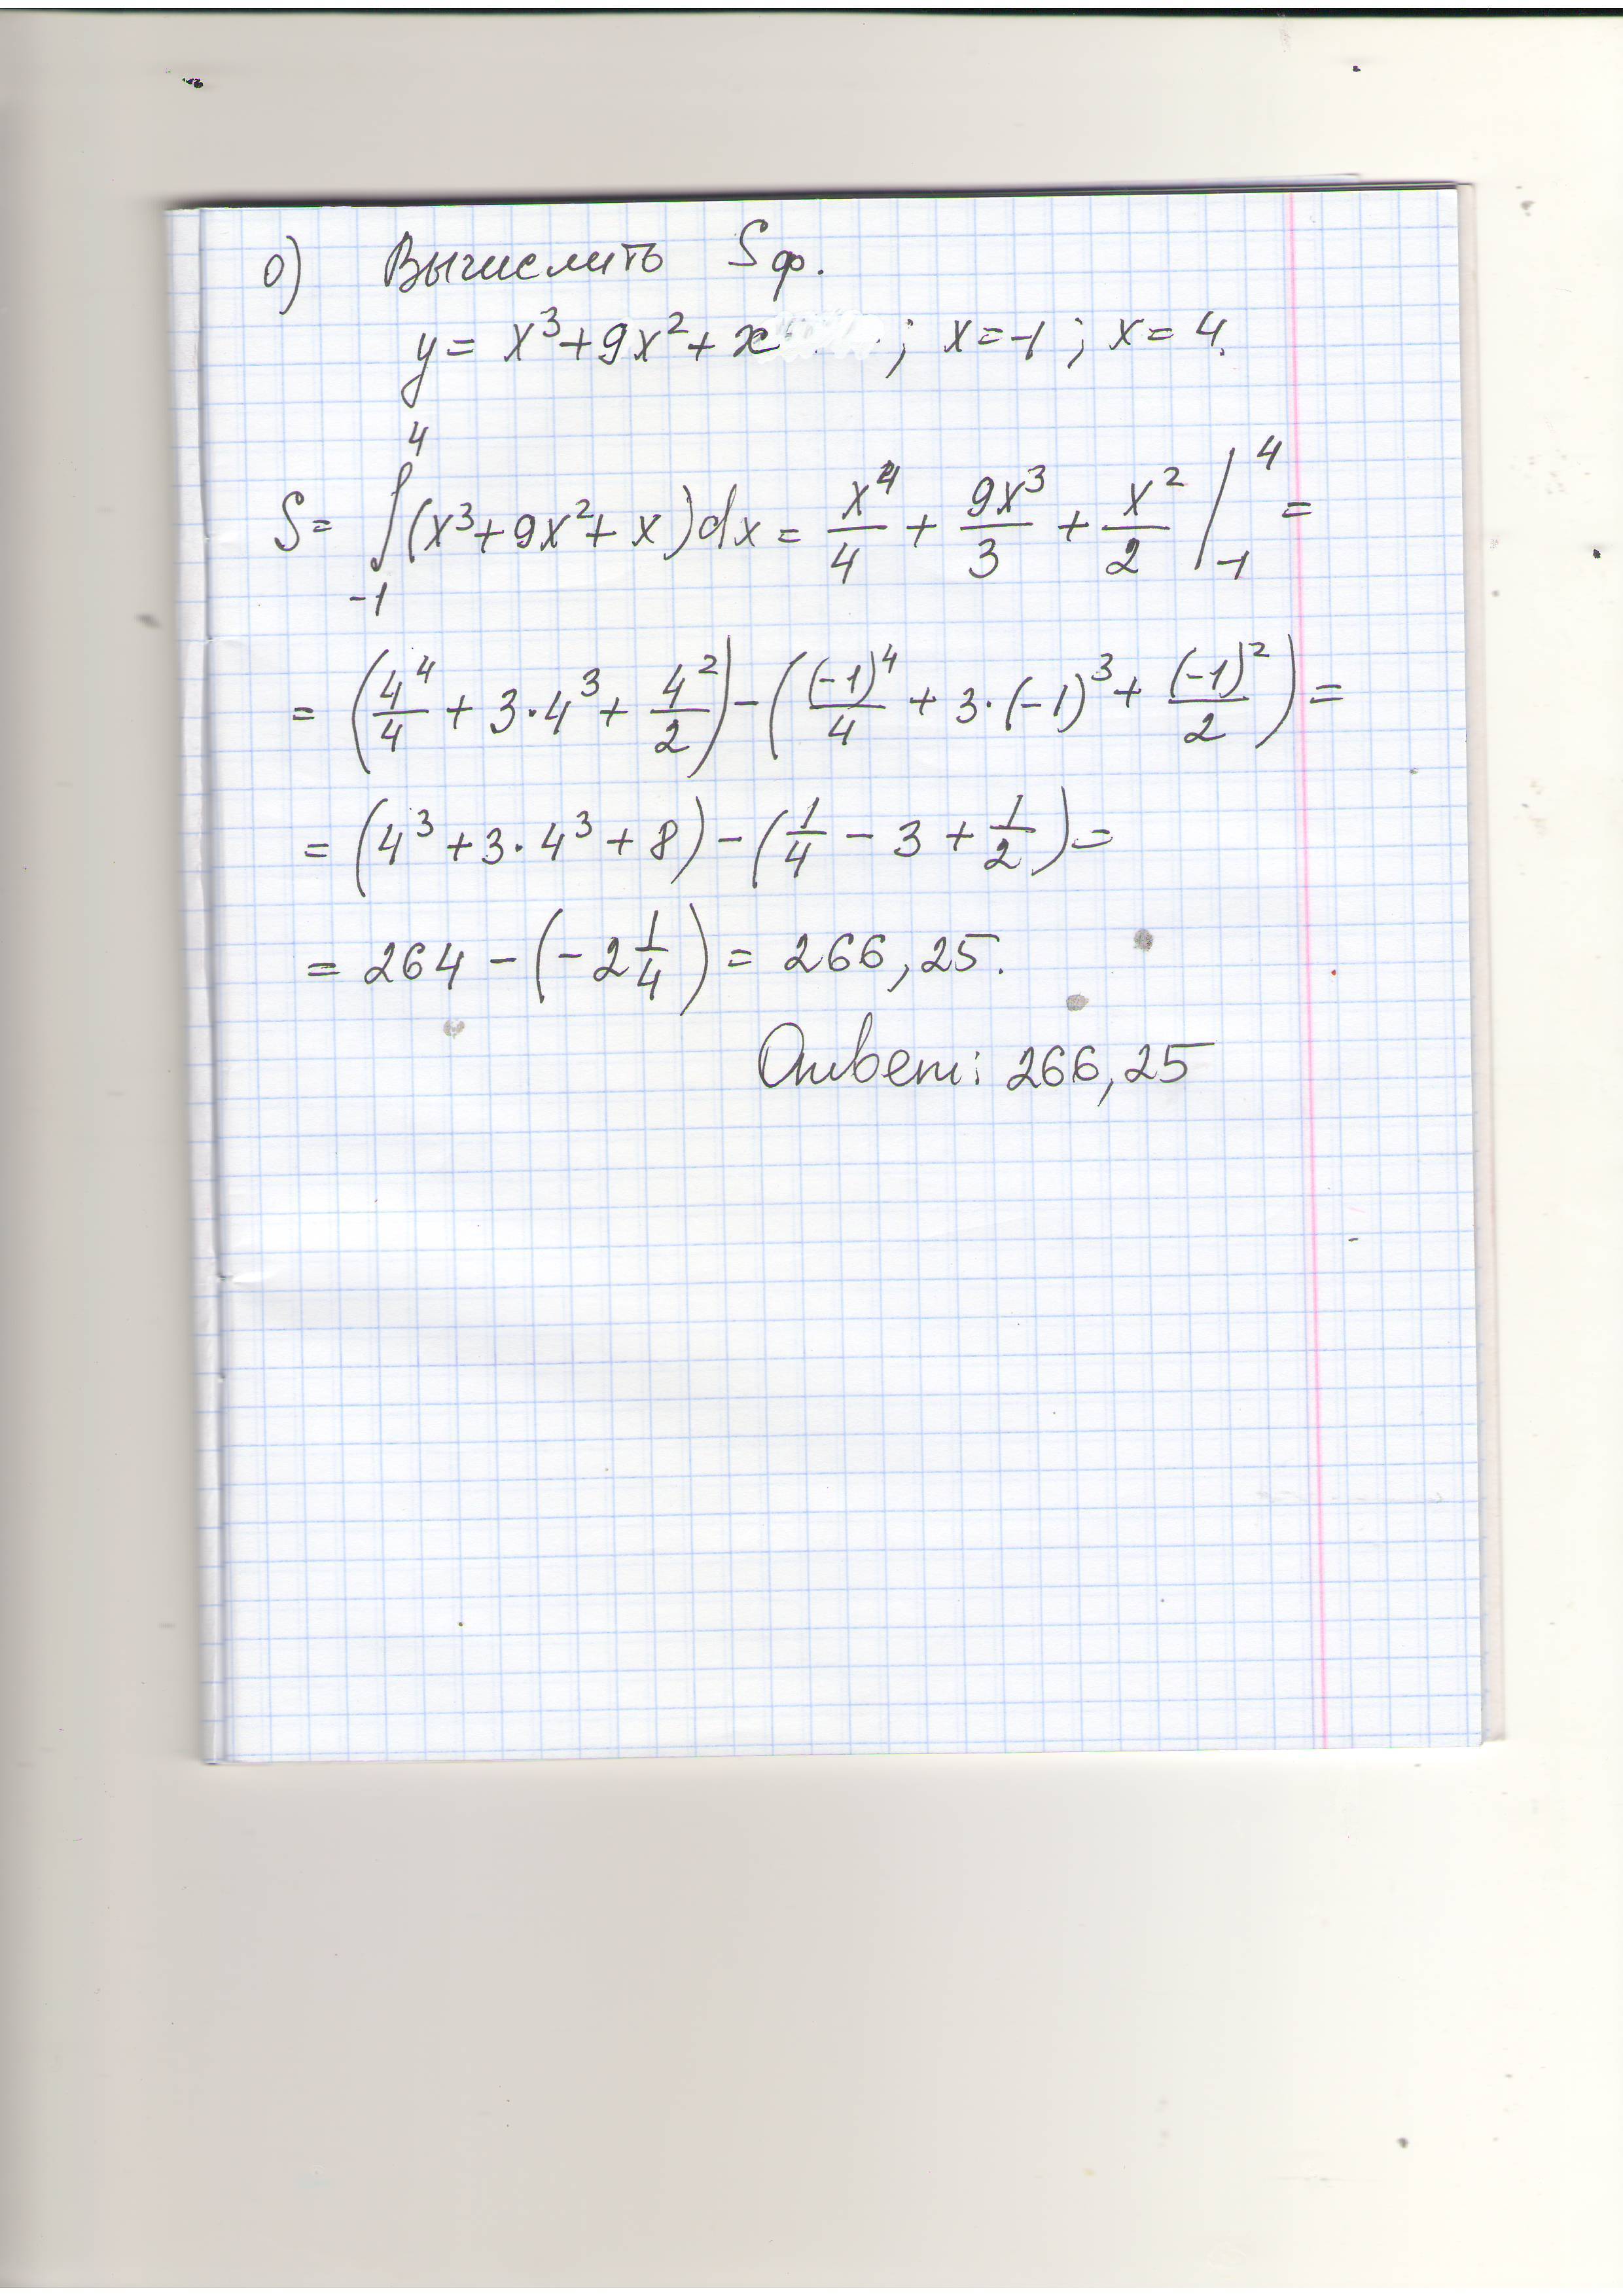 0) Вычислить Sф.
y = x³ + 9x² + x ; x = -1 ; x = 4.
S = ∫₋₁⁴ (x³ + 9x² + x) dx = x⁴/4 + 9x³/3 + x²/2 |₋₁⁴ =
= (4⁴/4 + 3·4³ + 4²/2) - ((-1)⁴/4 + 3·(-1)³ + (-1)²/2) =
= (4³ + 3·4³ + 8) - (1/4 - 3 + 1/2) =
= 264 - (-2 1/4) = 266,25.
Ответ: 266,25